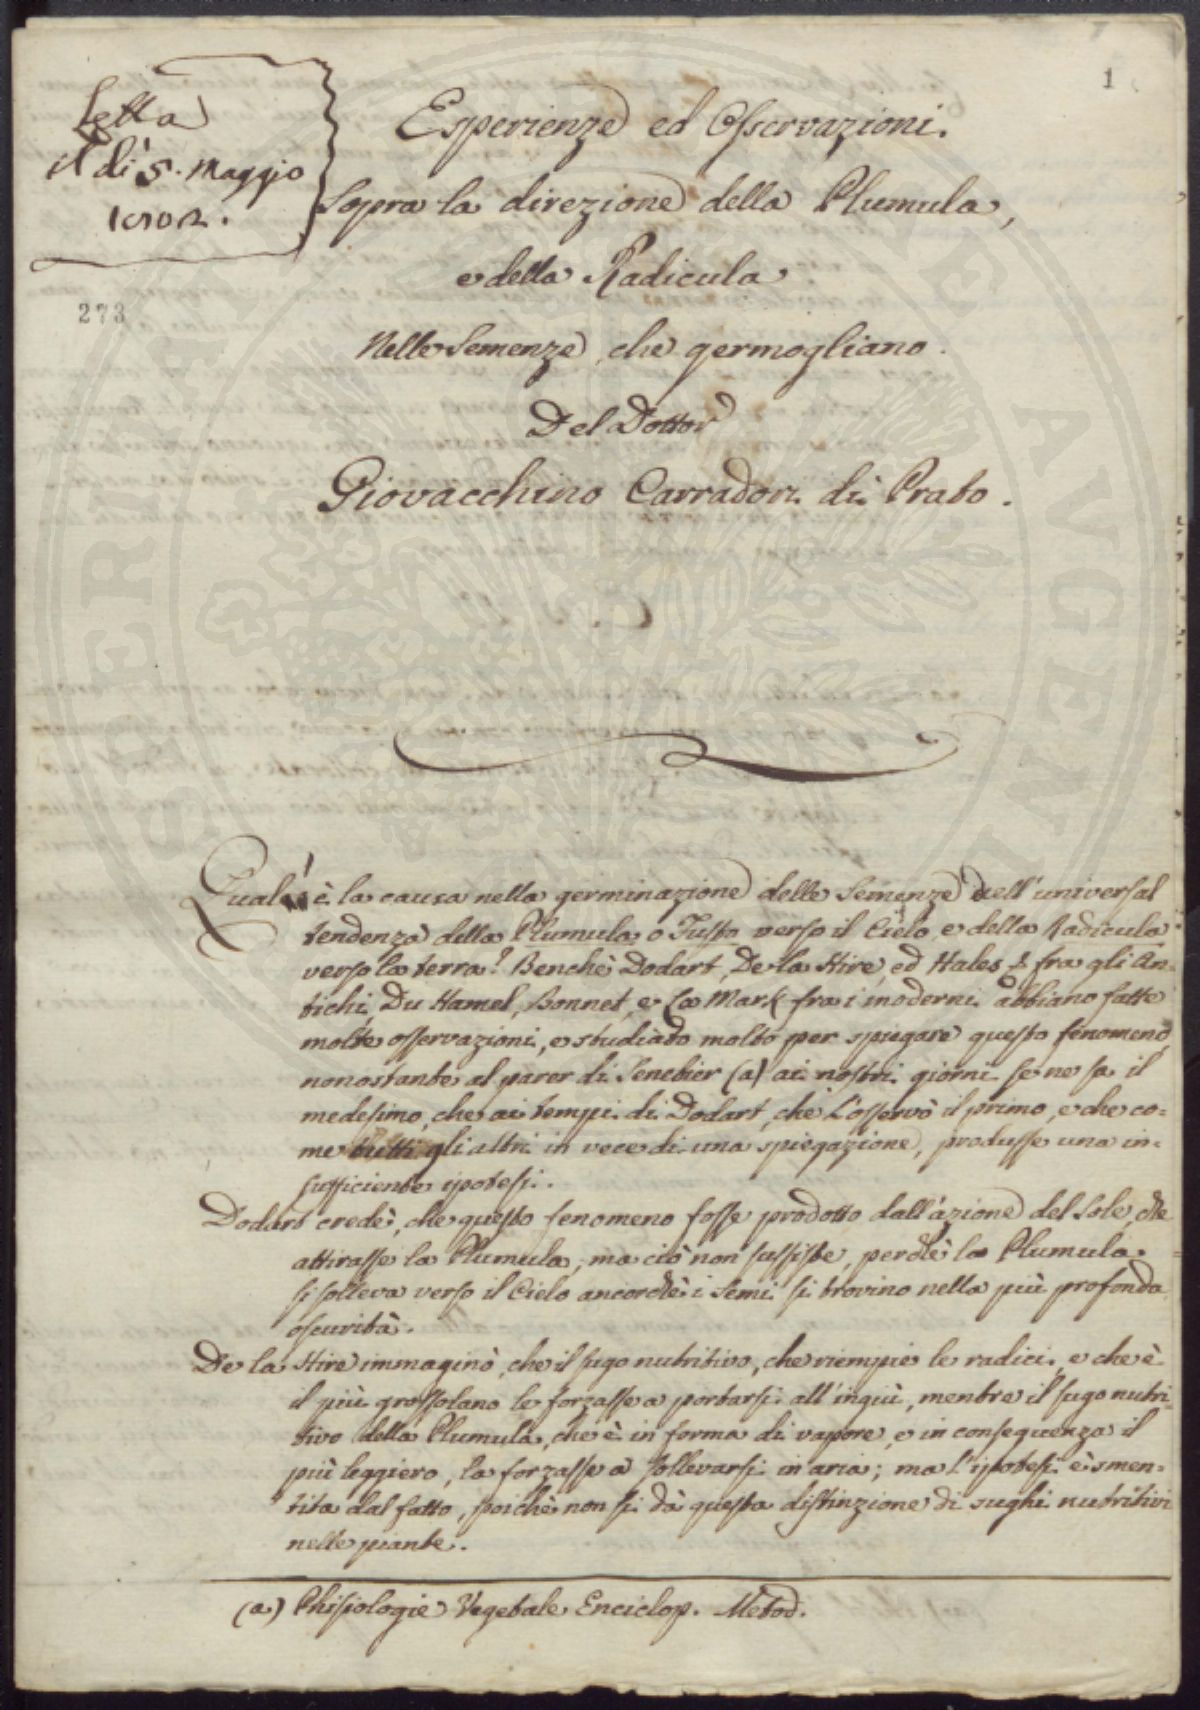 1
Letta
il dì 5. Maggio
1802.
273
Esperienze ed Osservazioni.
Sopra la direzione della Plumula,
e della Radicula
Nelle Semenze, che germogliano.
Del Dottor
Giovacchino Carradori di Prato.
Qual'è la causa nella germinazione delle Semenze dell'universal
tendenza della Plumula, o Fusto verso il Cielo, e della Radicula
verso la terra? Benchè Dodart, De la Hire, ed Hales fra gli An=
tichi, Du Hamel, Bonnet, e La Mark fra i moderni abbiano fatte
molte osservazioni, e studiato molto per spiegare questo fenomeno,
nonostante al parer di Senebier (a) ai nostri giorni se ne sa il
medesimo, che ai tempi di Dodart, che l'osservò il primo, e che co=
me tutti gli altri in vece di una spiegazione, produsse una in=
sufficiente ipotesi.
Dodart credè, che questo fenomeno fosse prodotto dall'azione del Sole, che
attirasse la Plumula; ma ciò non sussiste, perchè la Plumula
si solleva verso il Cielo ancorchè i Semi si trovino nella più profonda
oscurità.
De la Hire immaginò, che il sugo nutritivo, che riempie le radici, e che è
il più grossolano le forzasse a portarsi all'ingiù, mentre il sugo nutri=
tivo della Plumula, che è in forma di vapore, e in conseguenza il
più leggiero, la forzasse a sollevarsi in aria; ma l'ipotesi è smen=
tita dal fatto, poichè non si dà questa distinzione di sughi nutritivi
nelle piante.
(a) Phisiologie Vegetale Enciclop. Metod.
SIERPINATI
AVGENT